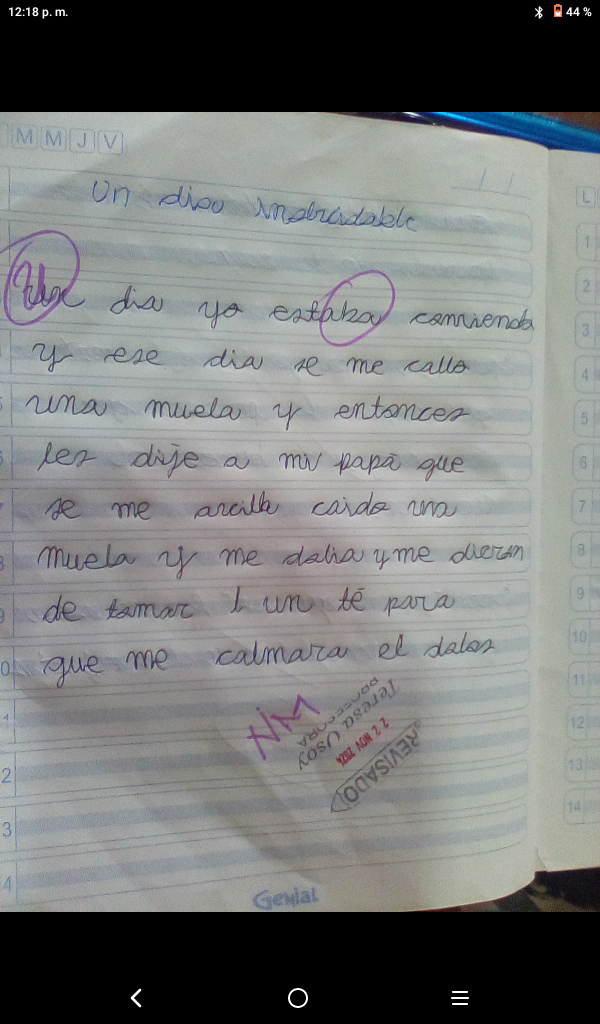 12:18 p. m.
44 %
M M J V
L
Un dia yo estaba comiendo
y ese dia se me callo
una muela y entonces
les dije a mi papá que
se me caido una
muela y me dolia y me dieron
de tomar un té para
que me calmara el dolor
NM
Teresa Usoy
PROFESORA
22 NOV 2024
REVISADO
1
2
3
4
5
6
7
8
9
10
11
12
13
14
2
3
4
Genial